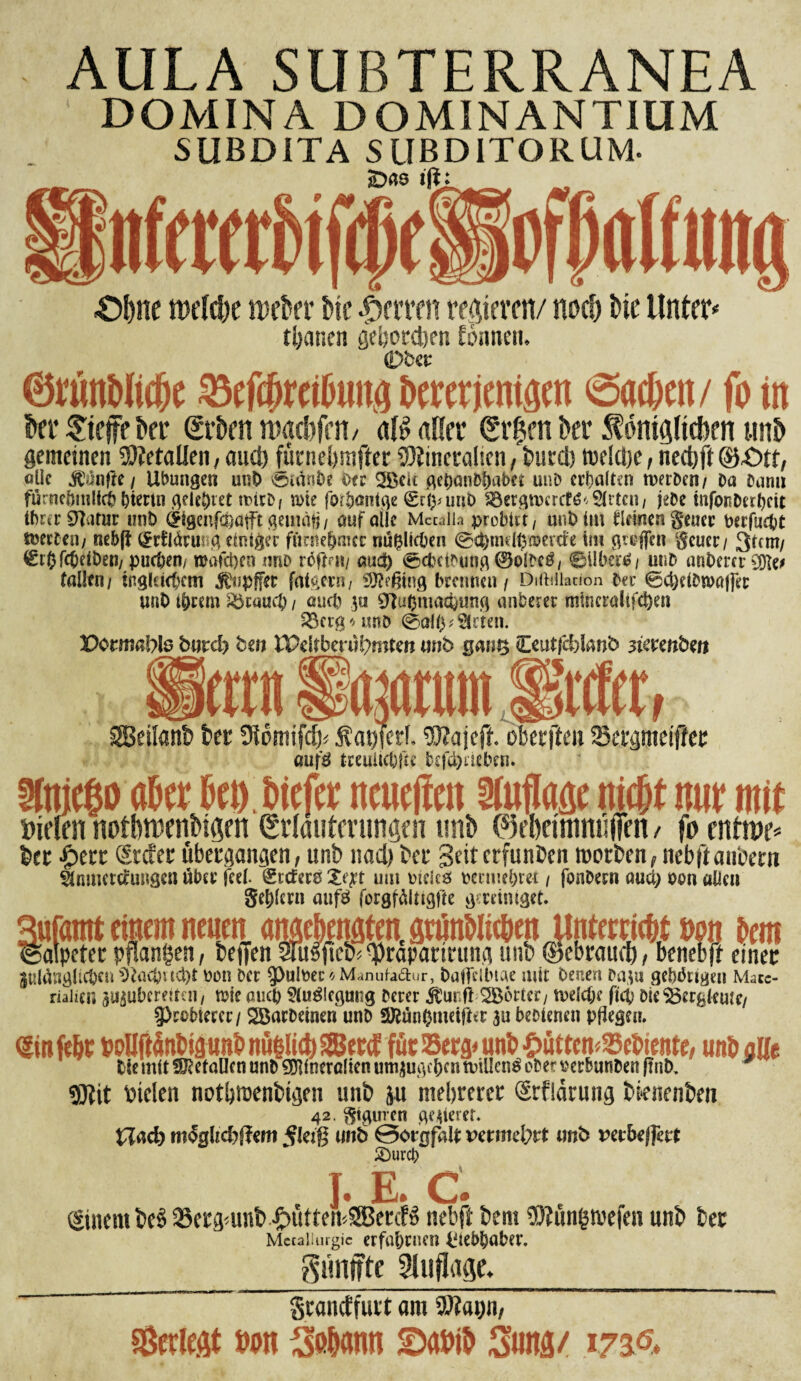 AULA SUBTERRANEA
DOMINA DOMINANTIUM
SUBDITA SUBDITORUM.
Das ist:
Untererdische Hofhaltung
Ohne welche weder die Herren regieren/ noch die Unter-
thanen gehorchen können.
Oder
Gründliche Beschreibung dererjenigen Sachen/ so in
der Tieffe der Erden wachsen/ als aller Ertzen der Königlichen und
gemeinen Metallen/ auch fürnehmster Mineralien/ durch welche/ nechst GOtt,
alle Künste/ Übungen und Stände der Welt gehandhabet und erhalten werden/ da dann
fürnehmlich hierin gelehret wird/ wie sothanige Ertz- und Bergwercks-Arten/ jede insonderheit
ihrer Natur und Eigenschafft gemäß/ auf alle Metalla probirt/ und im kleinen Feuer versucht
werden/ nebst Erklärung einiger fürnehmer nützlichen Schmeltzwercke im grossen Feuer/ Item/
Ertz scheiden/ puchen/ waschen und rösten/ auch Scheidung Goldes/ Silbers/ und anderer Me-
tallen/ ingleichem Kupffer saigern/ Meßing brennen/ Distillation der Scheidwasser
und ihrem Brauch/ auch zu Nutzmachung anderer mineralischen
Berg- und Saltz-Arten.
Vormahls durch den Weltberühmten und gantz Teutschland zierenden
Herrn Lazarum Ercker,
Weiland der Römisch-Kayserl. Majest. obersten Bergmeister
aufs treulichste beschrieben.
Anjetzo aber bey dieser neuesten Auflage nicht nur mit
vielen nothwendigen Erläuterungen und Geheimnüssen/ so entwe-
der Herr Ercker übergangen/ und nach der Zeit erfunden worden/ nebst andern
Anmerckungen über seel. Erckers Text um vieles vermehret/ sondern auch von allen
Fehlern aufs sorgfältigste gereiniget.
Zusamt einem neuen angehengten gründlichen Unterricht von dem
Salpeter pflantzen/ dessen Aussied-Präparirung und Gebrauch/ benebst einer
zulänglichen Nachricht von der Pulver-Manufactur, dasselbige mit denen dazu gehörigen Mate-
rialien zuzubereiten/ wie auch Auslegung derer Kunst-Wörter/ welche sich die Bergleute/
Probierer/ Wardeinen und Müntzmeister zu bedienen pflegen.
Ein sehr vollständig und nützlich Werck für Berg- und Hütten-Bediente, und alle
die mit Metallen und Mineralien umzugehen willens oder verbunden sind.
Mit vielen nothwendigen und zu mehrerer Erklärung dienenden
42. Figuren gezieret.
Nach möglichstem Fleiß und Sorgfalt vermehrt und verbessert
Durch
J. E. C.
Einem des Berg- und Hütten-Wercks nebst dem Müntzwesen und der
Metallurgie erfahrnen Liebhaber.
Fünffte Auflage.
Franckfurt am Mayn/
Verlegt von Johann David Jung/ 1736.